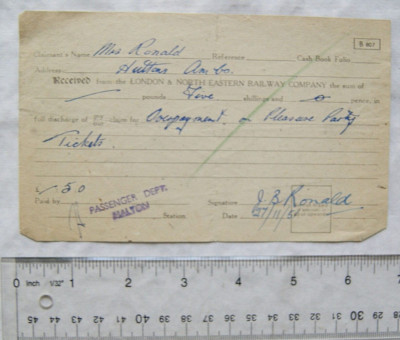 Claimant's Name Mrs Ronald Reference Cash Book Folio
Address Huttons Ambo.
Received from the LONDON & NORTH EASTERN RAILWAY COMPANY the sum of
pounds Five shillings and 0 pence, in
full discharge of claim for Overpayment on Pleasure Party
Tickets.
£ 5 0
Paid by PASSENGER DEPT. Signature J B Ronald
MALTON
Station. Date
0 Inch 1/32" 1 2 3 4 5 6 7
45 44 43 42 41 40 39 38 37 36 35 34 33 32 31 30 29 28